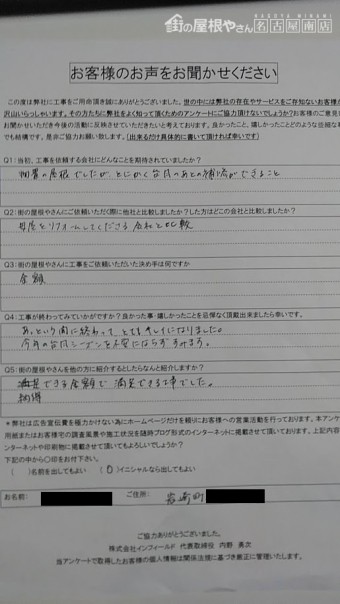 街の屋根やさん 名古屋南店
NAGOYA MINAMI
お客様のお声をお聞かせください
この度は弊社に工事をご用命頂き誠にありがとうございました。世の中には弊社の存在やサービスをご存知ないお客様が
沢山いらっしゃいます。その方たちに弊社をよく知って頂くためのアンケートにご協力頂けないでしょうか?お客様のご意見
お聞かせいただき今後の活動に反映させていただきたいと考えております。良かったこと、嬉しかったことどのような些細な
でも結構です。是非ご協力お願い致します。(出来るだけ具体的に書いて頂ければ幸いです)
Q1:当初、工事を依頼する会社にどんなことを期待されていましたか?
の屋根でしたが とにかく台風のあとの補修ができること
Q2:街の屋根やさんにご依頼いただく際に他社と比較しましたか?した方はどこの会社と比較しましたか?
リフォームしてくださる会社と比較
Q3:街の屋根やさんに工事をご依頼いただいた決め手は何ですか
金額
Q4:工事が終わってみていかがですか?良かった事・嬉しかったことを忌憚なく頂戴出来ましたら幸いです。
あっという間に終わって とてもキレイになりました。
今年の台風シーズンを不安にならずすみます。
Q5:街の屋根やさんを他の方に紹介するとしたらなんと紹介しますか?
満足できる金額で 満足できる工事でした。
納得
*弊社は広告宣伝費を極力かけない為にホームページだけを頼りにお客様への営業活動を行っております。本アンケ
用紙またはお客様宅の調査風景や施工状況を随時ブログ形式のインターネットに掲載させて頂いております。上記内容
ンターネットや印刷物に掲載させて頂いてもよろしいでしょうか?
下記の中から〇印をお付下さい。
( )名前を出してもよい (〇)イニシャルなら出してもよい
お名前: ご住所:
ご協力ありがとうございました。
株式会社インフィールド 代表取締役 内野 高次
当アンケートで取得したお客様の個人情報は関係法規に基づき厳正に管理いたします。